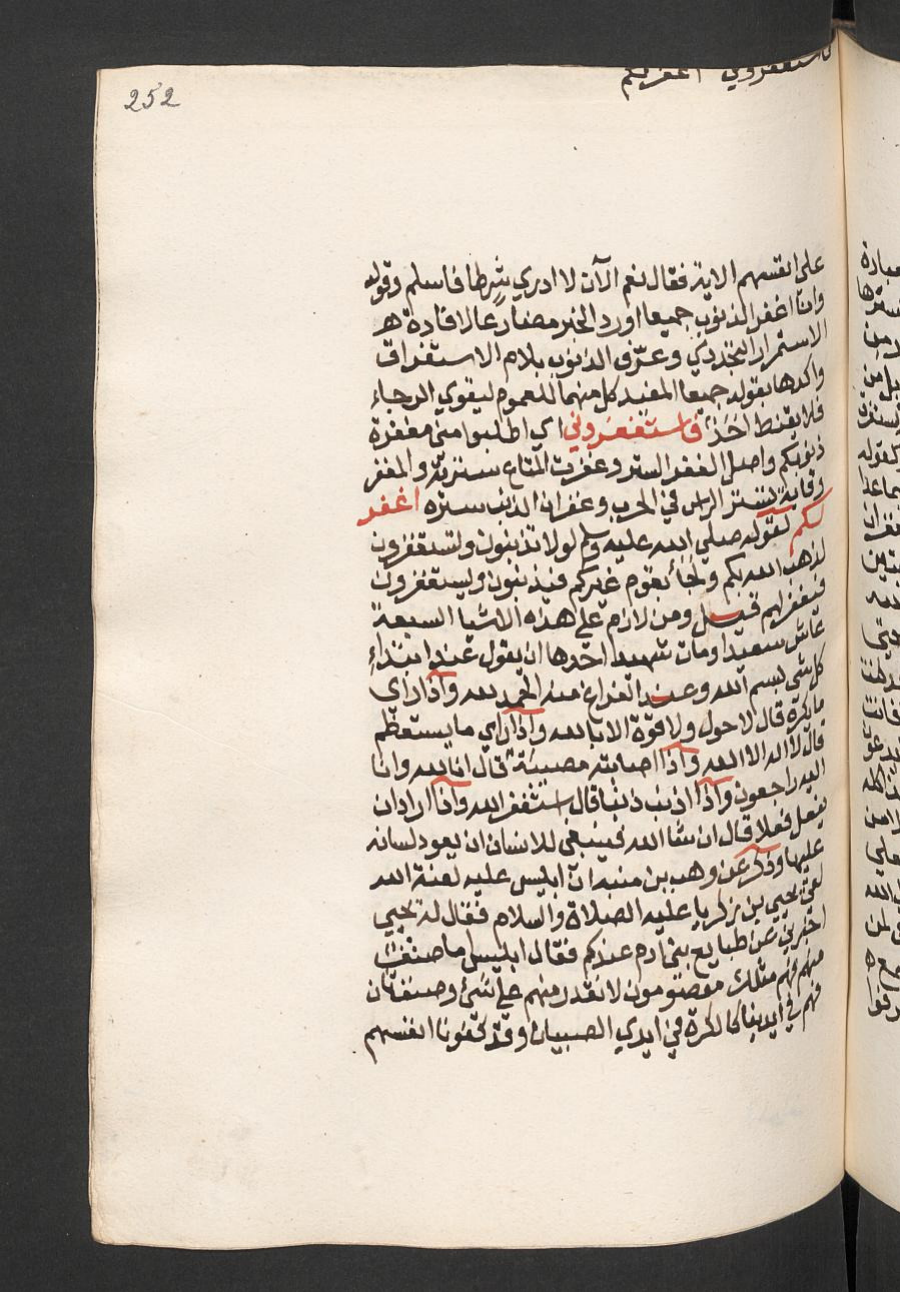 فاستغفروني اغفر لكم
252
على انفسهم الاية فقال نعم الآن لا ادري شرطا فاسلم وقوله
وانا اغفر الذنوب جميعا اورد الخبر مضارعا لافادة هـ
الاستمرار التجددي وعرف الذنوب بلام الاستغراق
واكدها بقوله جميعا المفيد كل منهما للعموم ليقوي الرجاء
فلا يقنط احد فاستغفروني اي اطلبوا مني مغفرة
ذنوبكم واصل الغفر الستر وغفرت المتاع سترته والمغفر
وقاية يستر الراس في الحرب وغفران الذنب ستره اغفر
لكم لقوله صلى الله عليه وسلم لولا تذنبون وتستغفرون
لذهب الله بكم ولجأ بقوم غيركم فيذنبون ويستغفرون
فيغفر لهم قيل ومن لازم على هذه الاشيا السبعة
عاش سعيدا ومات شهيدا احدها ان يقول عند ابتداء
كل شي بسم الله وعند الفراغ منه الحمد لله واذا راي
ما يكره قال لا حول ولا قوة الا بالله واذا راي ما يستعظم
قال لا اله الا الله واذا اصابته مصيبة قال انا لله وانا
اليه راجعون واذا اذنب ذنبا قال استغفر الله واذا اراد ان
يفعل فعلا قال ان شا الله فينبغي للانسان ان يعود لسانه
عليها وذكر عن وهب بن منبه ان ابليس عليه لعنة الله
لقي يحيي بن زكريا عليه الصلاة والسلام فقال له يحيي
اخبرني عن طبايع بني ادم عندكم فقال ابليس اما صنف
منهم فهم مثلك معصومون لا نقدر منهم على شئ وصنف ثان
فهم في ايدينا كالكرة في ايدي الصبيان وقد كفونا انفسهم